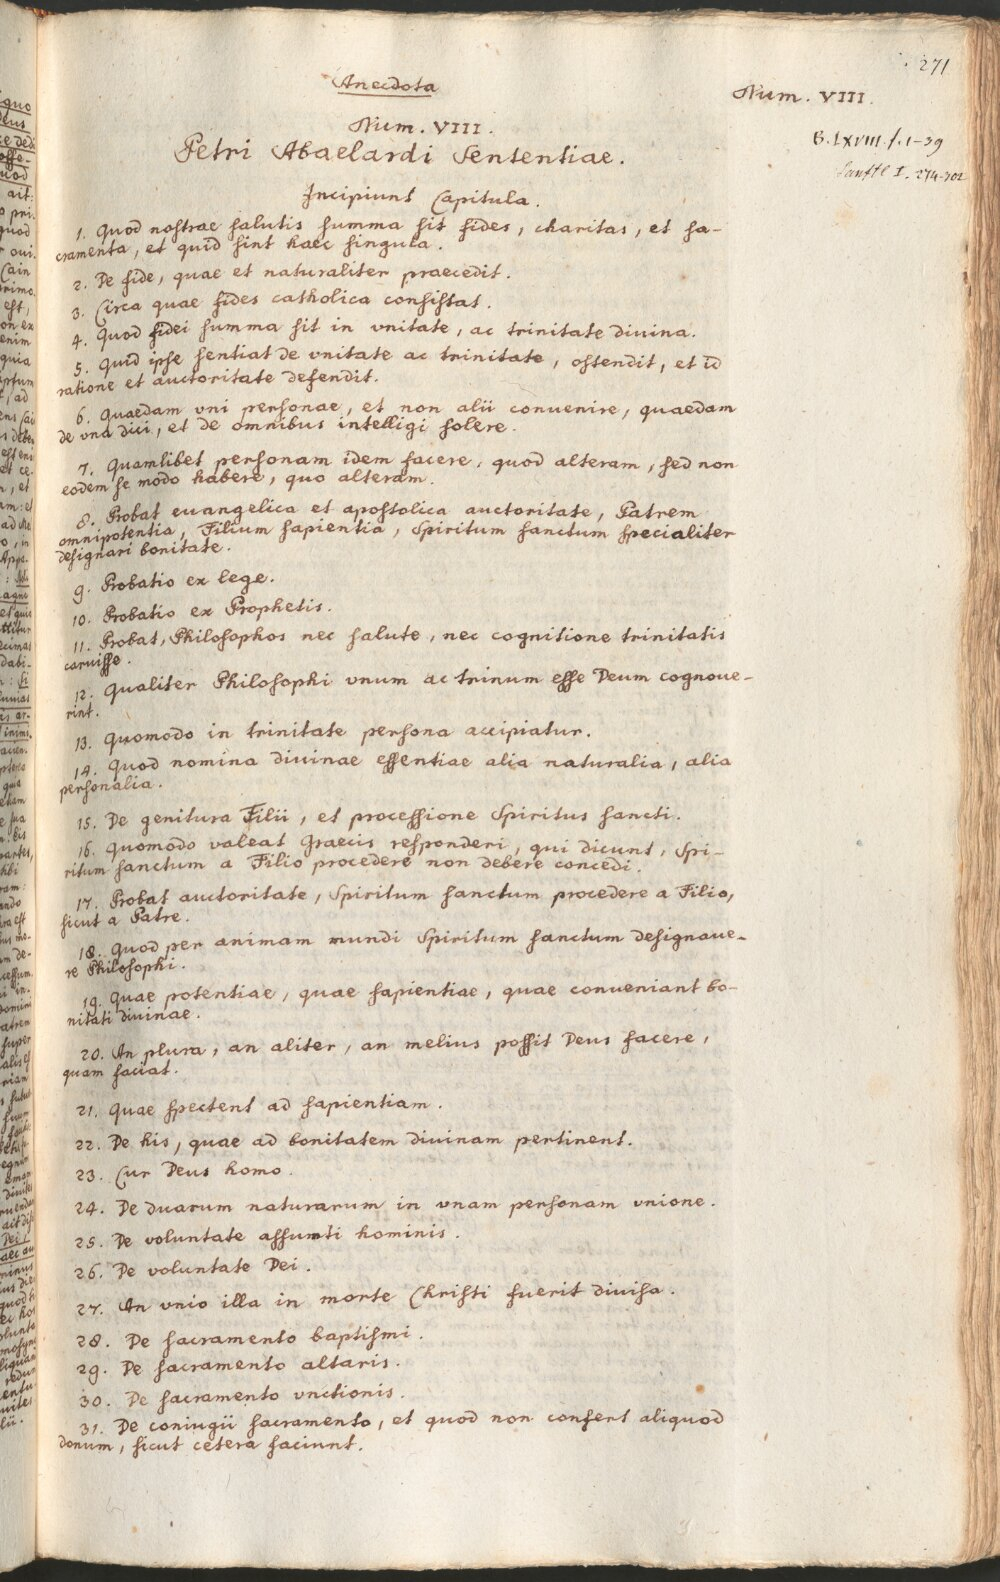 271
Anecdota
Num. VIII.
Num. VIII.
B. LXVIII f. 1-39
Sanftl I. 274-302
Petri Abaelardi Sententiae.
Incipiunt Capitula.
1. Quod nostrae salutis summa sit fides, charitas, et sa-
cramenta, et quid sint haec singula.
2. De fide, quae et naturaliter praecedit.
3. Circa quae fides catholica consistat.
4. Quod fidei summa sit in vnitate, ac trinitate diuina.
5. Quid ipse sentiat de vnitate ac trinitate, ostendit, et id
ratione et auctoritate defendit.
6. Quaedam vni personae, et non alii conuenire, quaedam
de vna dici, et de omnibus intelligi solere.
7. Quamlibet personam idem facere, quod alteram, sed non
eodem se modo habere, quo alteram.
8. Probat euangelica et apostolica auctoritate, Patrem
omnipotentia, Filium sapientia, Spiritum sanctum specialiter
designari bonitate.
9. Probatio ex lege.
10. Probatio ex Prophetis.
11. Probat, Philosophos nec salute, nec cognitione trinitatis
caruisse.
12. Qualiter Philosophi vnum ac trinum esse Deum cognoue-
rint.
13. Quomodo in trinitate persona accipiatur.
14. Quod nomina diuinae essentiae alia naturalia, alia
personalia.
15. De genitura Filii, et processione Spiritus sancti.
16. Quomodo valeat Graecis responderi, qui dicunt, Spi-
ritum sanctum a Filio procedere non debere concedi.
17. Probat auctoritate, Spiritum sanctum procedere a Filio,
sicut a Patre.
18. Quod per animam mundi Spiritum sanctum designaue-
re Philosophi.
19. Quae potentiae, quae sapientiae, quae conueniant bo-
nitati diuinae.
20. An plura, an aliter, an melius possit Deus facere,
quam faciat.
21. Quae spectent ad sapientiam.
22. De his, quae ad bonitatem diuinam pertinent.
23. Cur Deus homo.
24. De duarum naturarum in vnam personam vnione.
25. De voluntate assumti hominis.
26. De voluntate Dei.
27. An vnio illa in morte Christi fuerit diuisa.
28. De sacramento baptismi.
29. De sacramento altaris.
30. De sacramento vnctionis.
31. De coniugii sacramento, et quod non confert aliquod
donum, sicut cetera faciunt.